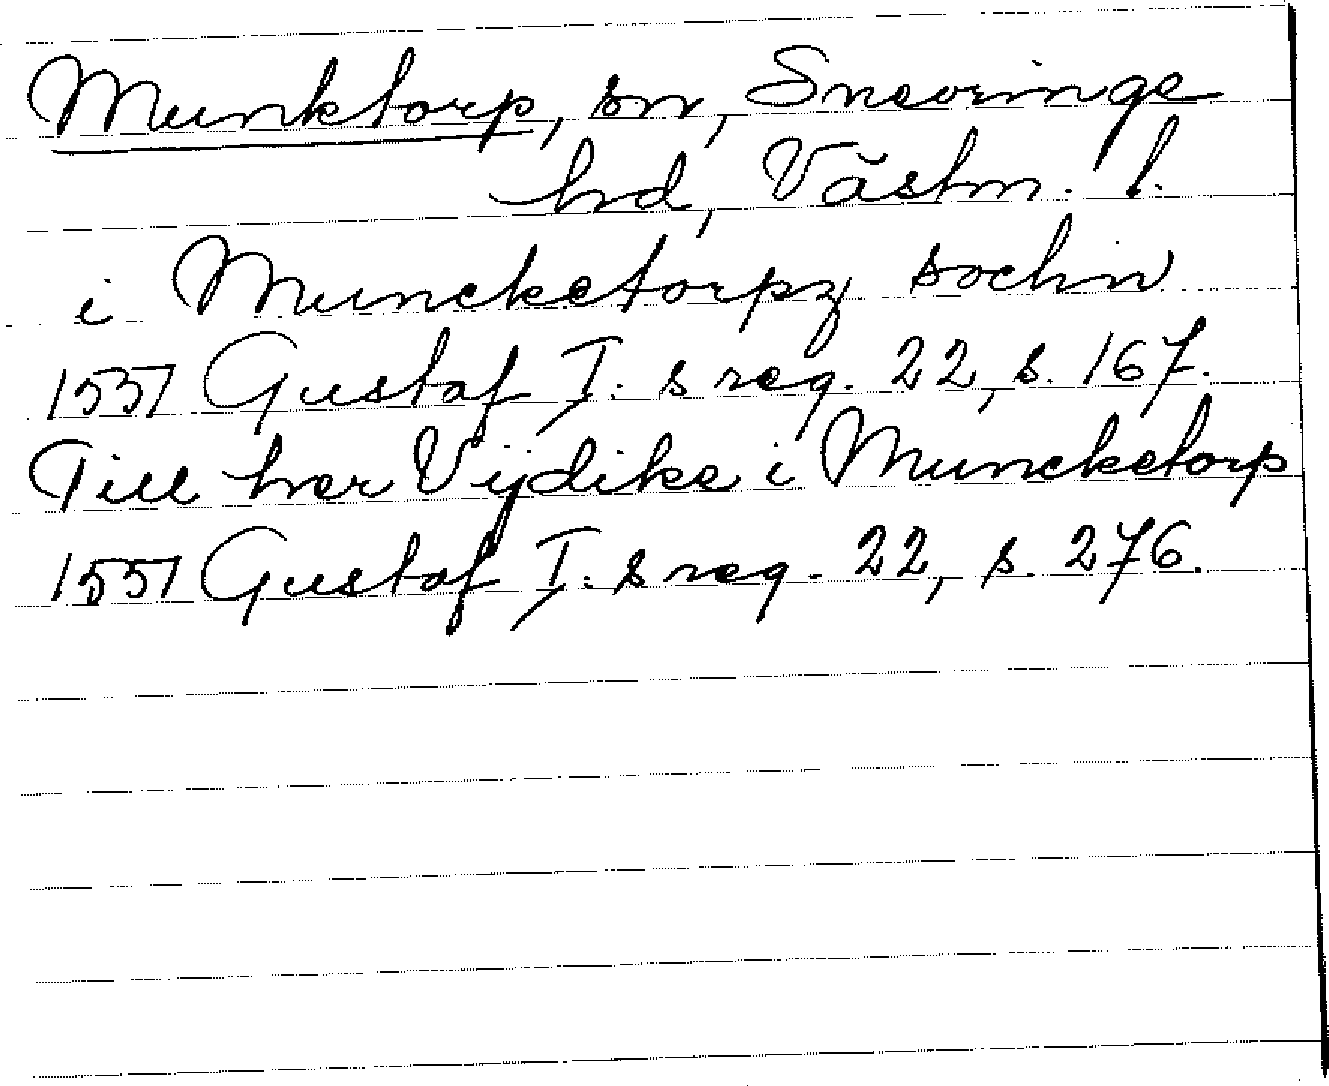 Munktorp, sn, Snevringe
hd, Västm. l.
i Muncketorpz sochn
1551 Gustaf I:s reg. 22, s. 167.
Till her Vijdike i Muncketorp
1551 Gustaf I:s reg. 22, s. 276.